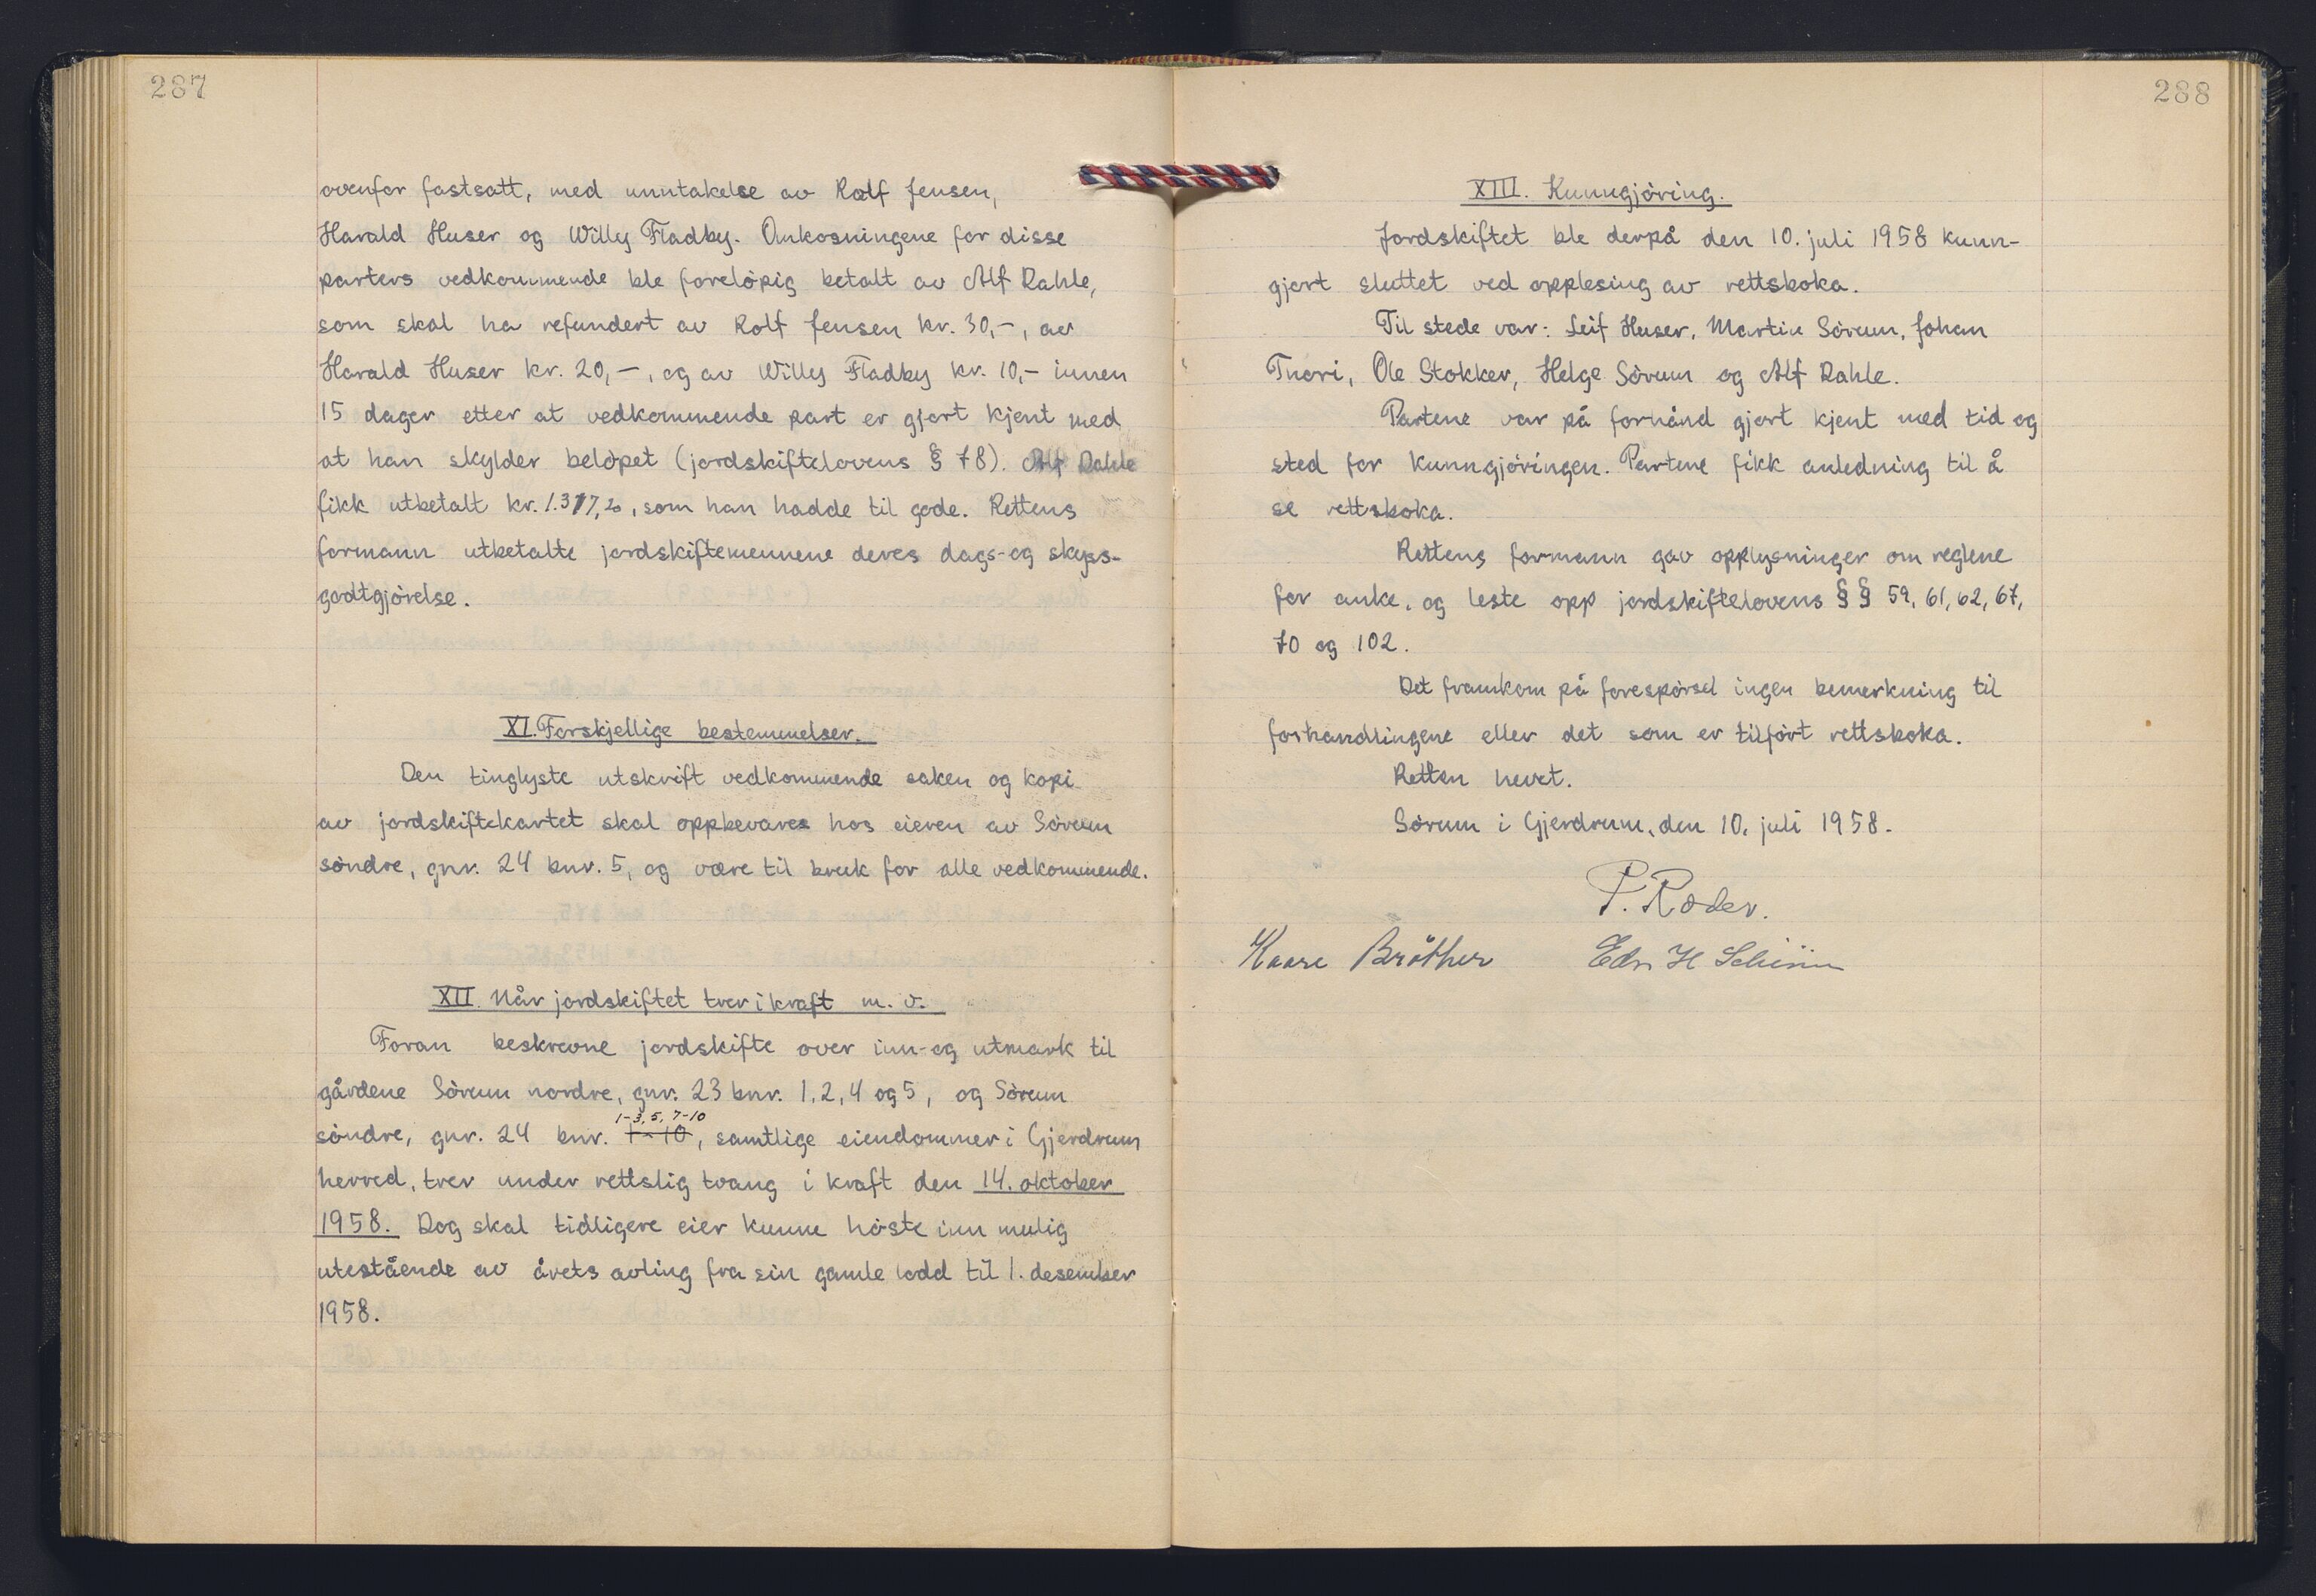 287
ovenfor fastsatt, med unntakelse av Rolf Jensen,
Harald Huser og Willy Fladby. Omkosningene for disse
parters vedkommende ble forelöpig betalt av Alf Dahle,
som skal ha refundert av Rolf Jensen kr. 30,-, av
Harald Huser kr. 20,-, og av Willy Fladby kr. 10,- innen
15 dager etter at vedkommende part er gjort kjent med
at han skylder belöpet (jordskiftelovens § 78). Alf Dahle
fikk utbetalt kr. 1.317,20, som han hadde til gode. Rettens
formann utbetalte jordskiftemennene deres dags- og skyss-
godtgjörelse.
XI. Forskjellige bestemmelser.
Den tinglyste utskrift vedkommende saken og kopi
av jordskiftekartet skal oppbevares hos eieren av Sörum
söndre, gnr. 24 bnr. 5, og være til bruk for alle vedkommende.
XII. Når jordskiftet trer i kraft m. v.
Foran beskrevne jordskifte over inn- og utmark til
gårdene Sörum nordre, gnr. 23 bnr. 1, 2, 4 og 5, og Sörum
1-3, 5, 7-10
söndre, gnr. 24 bnr. 1-10, samtlige eiendommer i Gjerdrum
herred, trer under rettslig tvang i kraft den 14. oktober
1958. Dog skal tidligere eier kunne höste inn mulig
utestående av årets avling fra sin gamle lodd til 1. desember
1958.
288
XIII. Kunngjöring.
Jordskiftet ble derpå den 10. juli 1958 kunn-
gjort sluttet ved opplesing av rettsboka.
Til stede var: Leif Huser, Martin Sörum, Johan
Tueri, Ole Stokker, Helge Sörum og Alf Dahle.
Partene var på forhånd gjort kjent med tid og
sted for kunngjöringen. Partene fikk anledning til å
se rettsboka.
Rettens formann gav opplysninger om reglene
for anke, og leste opp jordskiftelovens § § 59, 61, 62, 67,
70 og 102.
Det framkom på forespörsel ingen bemerkning til
forhandlingene eller det som er tilfört rettsboka.
Retten hevet.
Sörum i Gjerdrum, den 10. juli 1958.
P. Røder.
Kaare Bråther Edv H